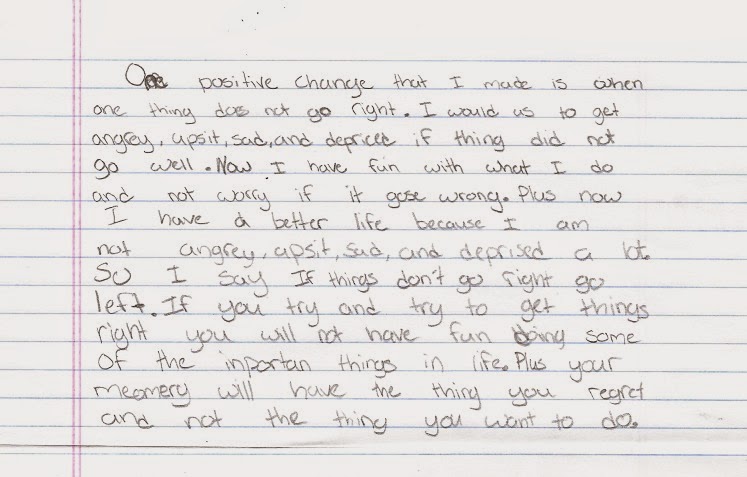 One positive change that I made is when
one thing does not go right. I would us to get
angrey, upsit, sad, and depriced if thing did not
go well. Now I have fun with what I do
and not worry if it gose wrong. Plus now
I have a better life because I am
not angrey, upsit, sad, and deprised a lot.
So I say If things don't go right go
left. If you try and try to get things
right you will not have fun doing some
of the inportan things in life. Plus your
meomery will have the thing you regret
and not the thing you want to do.